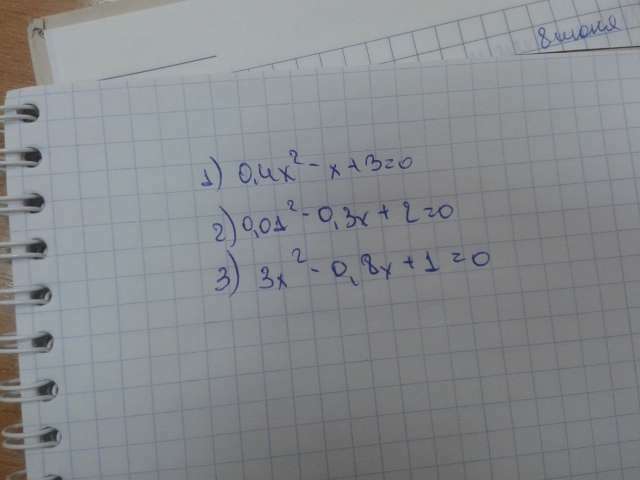 8 июня
1) 0,4x² - x + 3 = 0
2) 0,01² - 0,3x + 2 = 0
3) 3x² - 0,8x + 1 = 0